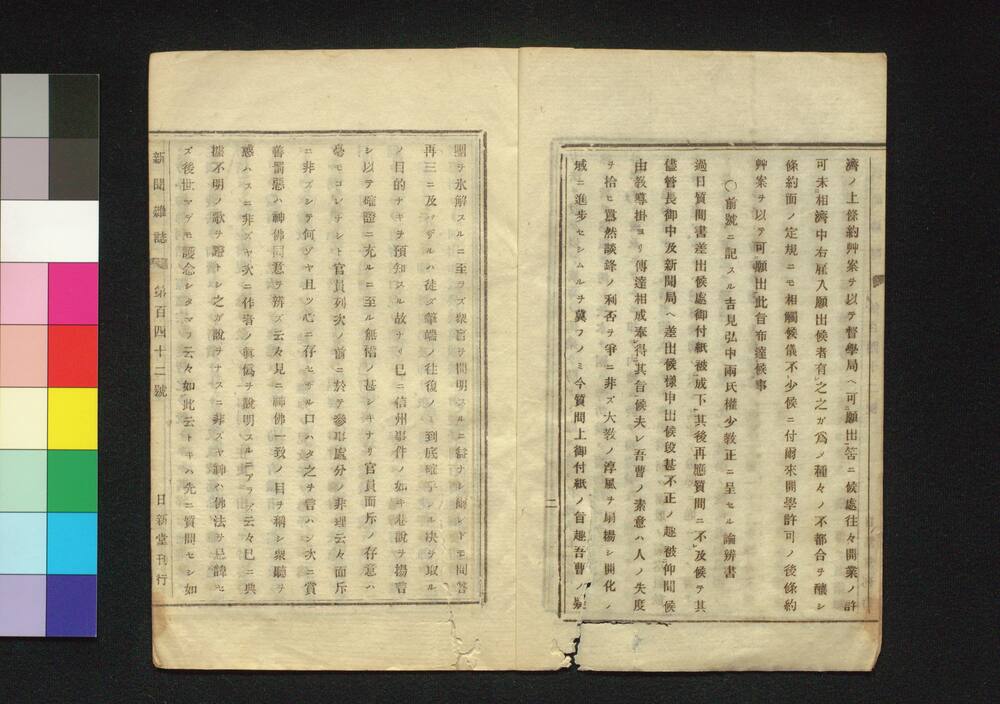 濟ノ上條約艸案ヲ以テ督學局ヘ可願出筈ニ候處往々開業ノ許
可未相濟中右雇入願出候者有之之ガ為メ種々ノ不都合ヲ釀シ
條約面ノ定規ニモ相觸候儀不少候ニ付爾來開學許可ノ後條約
艸案ヲ以テ可願出此旨布達候事
〇前號ニ記スル吉見弘中兩氏權少教正ニ呈セル論辨書
過日質問書差出候處御付紙被成下其後再應質問ニ不及候テ其
儘管長御中及新聞局ヘ差出候樣申出候段甚不正ノ趣被仰聞候
由教導掛ヨリ傳達相成奉得其旨候夫レ吾曹ノ素意ハ人ノ失度
ヲ拾ヒ囂然談鋒ノ利否ヲ爭ニ非ズ大教ノ淳風ヲ扇揚シ開化ノ
域ニ進步セシムルヲ冀フノミ今質問上御付紙ノ旨趣吾曹ノ疑
二
團ヲ氷解スルニ至ラズ衆盲ヲ開明スルニ益ナシ縱レドモ問答
再三ニ及バザルハ徒ダ筆端ノ往復ノミ到底確乎タル決ヲ取ル
ノ目的ナキヲ預知スル故ナリ已ニ信州事件ノ如キ巷說ヲ揚言
シ以テ確證ニ充ルニ至ル無稽ノ甚シキナリ官員面斥ノ存意ハ
毫モコレナシト官員列次ノ前ニ於テ參事處分ノ非理云々面斥
ニ非ズシテ何ゾヤ且ツ心ニ存セザル口ハタ之ヲ言ハン次ニ賞
善罰惡ハ神佛同意ヲ辨ズ云々見ニ神佛一致ノ目ヲ稱シ衆聽ヲ
惑ハスニ非ズヤ次ニ作者ノ眞僞ヲ說明スルニアラズ云々已ニ典
據不明ノ歌ヲ證トシ之ガ說ヲナスニ非ズヤ神ハ佛法ヲ忌諱セ
ズ後世マデモ護念シタマフ云々如此云トキハ先ニ質問セシ如
新聞雜誌 第百四十二號 日新堂刊行